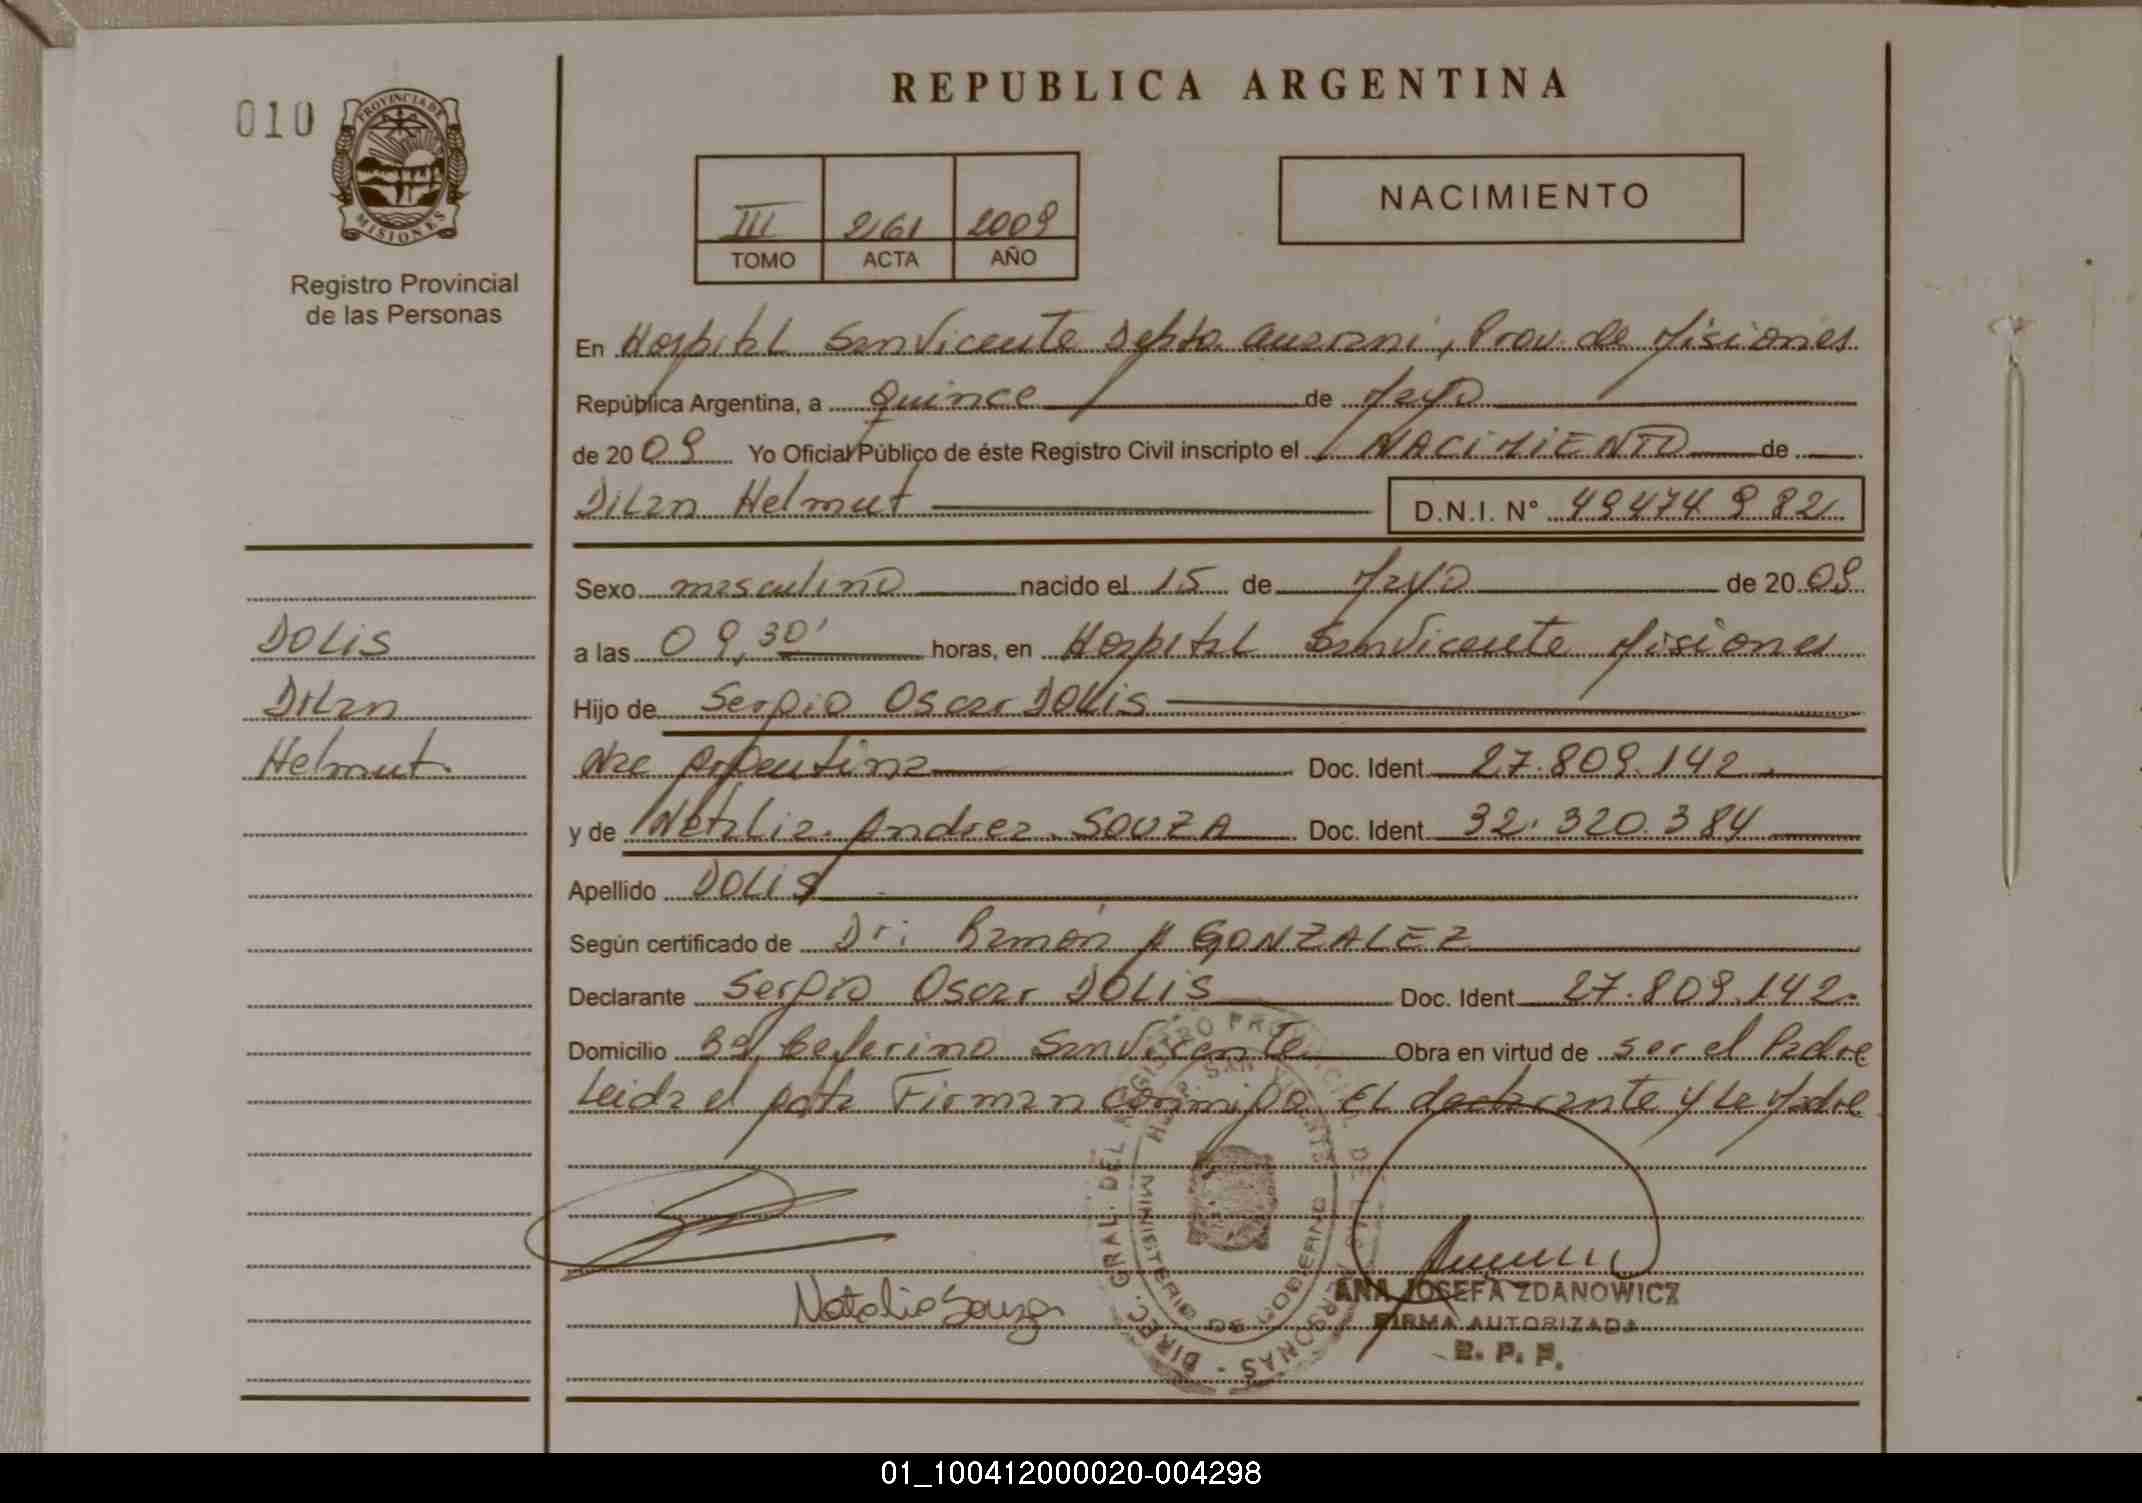 010
PROVINCIA DE
MISIONES
Registro Provincial
de las Personas
REPUBLICA ARGENTINA
III 2161 2009
TOMO ACTA AÑO
NACIMIENTO
En Hospital San Vicente Depto. Guarani, Prov. de Misiones
República Argentina, a Quince de Mayo
de 2009 Yo Oficial Público de éste Registro Civil inscripto el NACIMIENTO de
Dilan Helmut D.N.I. Nº 49474982
Sexo masculino nacido el 15 de Mayo de 2009
a las 09,30' horas, en Hospital San Vicente Misiones
Hijo de Sergio Oscar DOLIS
Nac Argentina Doc. Ident. 27.809.142
y de Natalia Andrea SOUZA Doc. Ident. 32.320.384
Apellido DOLIS
Según certificado de Dr: Ramón GONZALEZ
Declarante Sergio Oscar DOLIS Doc. Ident. 27.809.142.
Domicilio Bº Ceferino San Vicente Obra en virtud de ser el Padre
Leida el acta Firman conmigo EL declarante y la Madre
DOLIS
Dilan
Helmut
Natalia Souza
DIREC. GRAL. DEL REGISTRO PROVINCIAL DE LAS PERSONAS
MINISTERIO DE GOBIERNO
SAN VICENTE
ANA JOSEFA ZDANOWICZ
FIRMA AUTORIZADA
R. P. P.
01_100412000020-004298